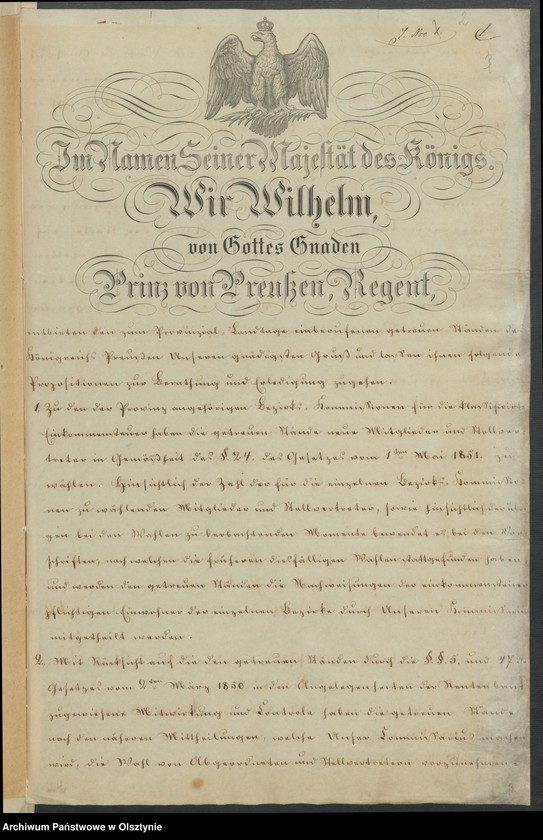 J. No
2
3
Im Namen Seiner Majestät des Königs.
Wir Wilhelm,
von Gottes Gnaden
Prinz von Preußen, Regent,
entbieten den zum Provinzial-Landtage einberufenen getreuen Ständen des
Königreichs Preußen Unseren gnädigsten Gruß und lassen ihnen folgende
Propositionen zur Berathung und Erledigung zugehen.
1, Zu den der Provinz angehörigen Bezirks-Kommissionen für die klassifizirte
Einkommensteuer haben die getreuen Stände neue Mitglieder und Stellver
treter in Gemäßheit des § 24. des Gesetzes vom 1ten Mai 1851. zu
wählen. Hinsichtlich der Zahl der für die einzelnen Bezirks-Kommissio
nen zu wählenden Mitglieder und Stellvertreter, sowie hinsichtlich der übri
gen bei den Wahlen zu beobachtenden Momente bewendet es bei den Vor
schriften, nach welchen die früheren diesfälligen Wahlen stattgefunden haben
und werden den getreuen Ständen die Nachweisungen der einkommensteuer
pflichtigen Einwohner der einzelnen Bezirke durch Unseren Kommissarius
mitgetheilt werden.
2. Mit Rücksicht auf die den getreuen Ständen durch die §§ 5. und 47. des
Gesetzes vom 2ten März 1850 in den Angelegenheiten der Rentenbank
zugewiesene Mitwirkung und Controle haben die getreuen Stände
nach den näheren Mittheilungen, welche Unser Commissarius machen
wird, die Wahl von Abgeordneten und Stellvertretern vorzunehmen
Archiwum Państwowe w Olsztynie